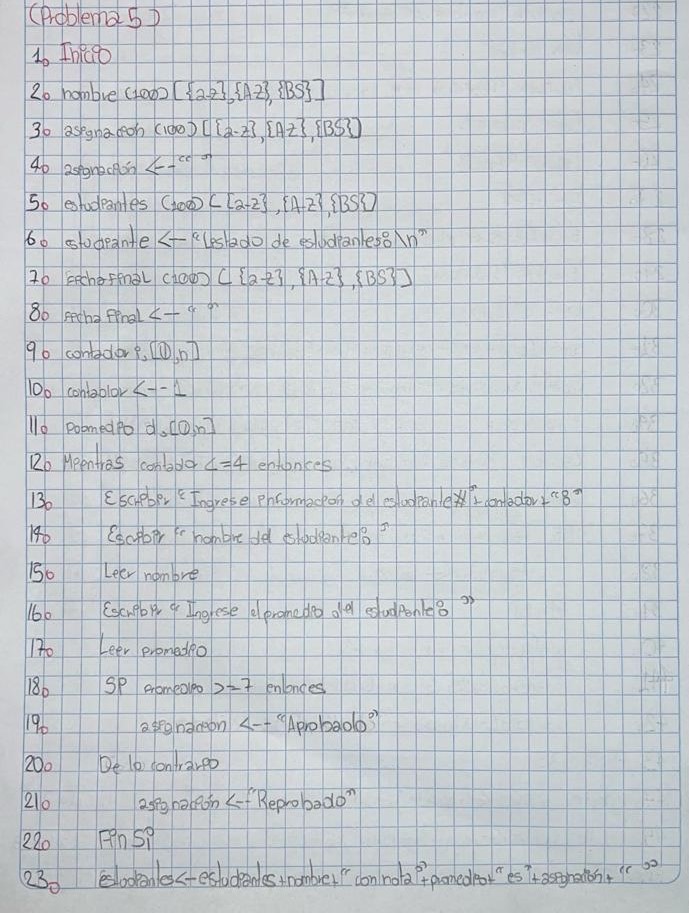 (Problema 5)
1. Inicio
2. nombre (100) [{a-z},{A-z},{BS}]
3. asignacion (100) [{a-z},{A-z},{BS}]
4. asignación <-- " "
5. estudiantes (100) [{a-z},{A-z},{BS}]
6. estudiante <-- "Listado de estudiantes: \n"
7. Fecha final (100) [{a-z},{A-z},{BS}]
8. Fecha final <-- " "
9. contador i,[0,n]
10. contador <-- 1
11. Poomedio d,[0,n]
12. Mientras contado <=4 entonces
13. Escriber "Ingrese informacion del estudiante #"+contador+"8"
14. Escribir "nombre del estudiante: "
15. Leer nombre
16. Escriber "Ingrese el promedio del estudiante: "
17. Leer promedio
18. Si promedio >=7 entonces
19. asignacion <-- "Aprobado"
20. De lo contrario
21. asignación <-- "Reprobado"
22. Fin Si
23. estudiantes <- estudiantes+nombre+"con nota"+promedio+"es"+asignación+" "